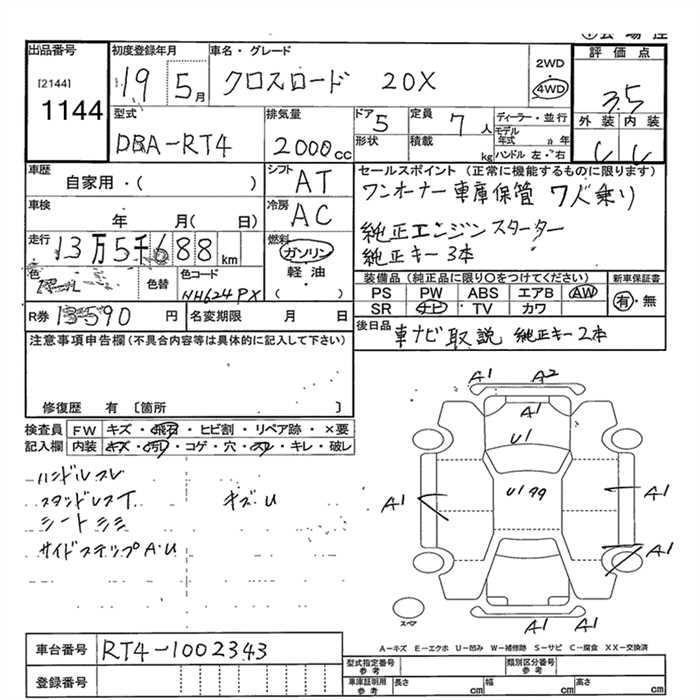 出品番号 [2144] 1144
初度登録年月 19 5月
車名・グレード クロスロード 20X
2WD 4WD
評価点 3.5
外装 内装
型式 DBA-RT4
排気量 2000cc
ドア 5 形状
定員 7人 積載 kg
ディーラー・並行
モデル年式 年
ハンドル 左・右
車歴 自家用・( )
シフト AT
セールスポイント (正常に機能するものに限ります)
ワンオーナー 車庫保管 7人乗り
純正エンジンスターター
純正キー3本
車検 年 月( 日)
冷房 AC
走行 13万5千688km
燃料 ガソリン 軽油・( )
色 色替 色コード NH624PX
装備品(純正品に限り○をつけてください) 新車保証書
PS PW ABS エアB AW 有・無
SR ナビ TV カワ
R券 13590円 名変期限 月 日
後日品 車ナビ取説 純正キー2本
注意事項申告欄(不具合内容等は具体的に記入して下さい)
修復歴 有 [箇所 ]
検査員 FW キズ・飛石・ヒビ割・リペア跡・×要
記入欄 内装 キズ・汚れ・コゲ・穴・スレ・キレ・破レ
ハンドルスレ
キズU
シートシミ
サイドステップA.U
A1 A2
A1
U1
A1 U199 A1
A1
A1 A1
スペア
A-キズ E-エクボ U-凹み W-補修跡 S-サビ C-腐食 XX-交換済
車台番号 RT4-1002343
登録番号
型式指定番号 参考 類別区分番号 参考
車庫証明用 参考 長さ cm 幅 cm 高さ cm